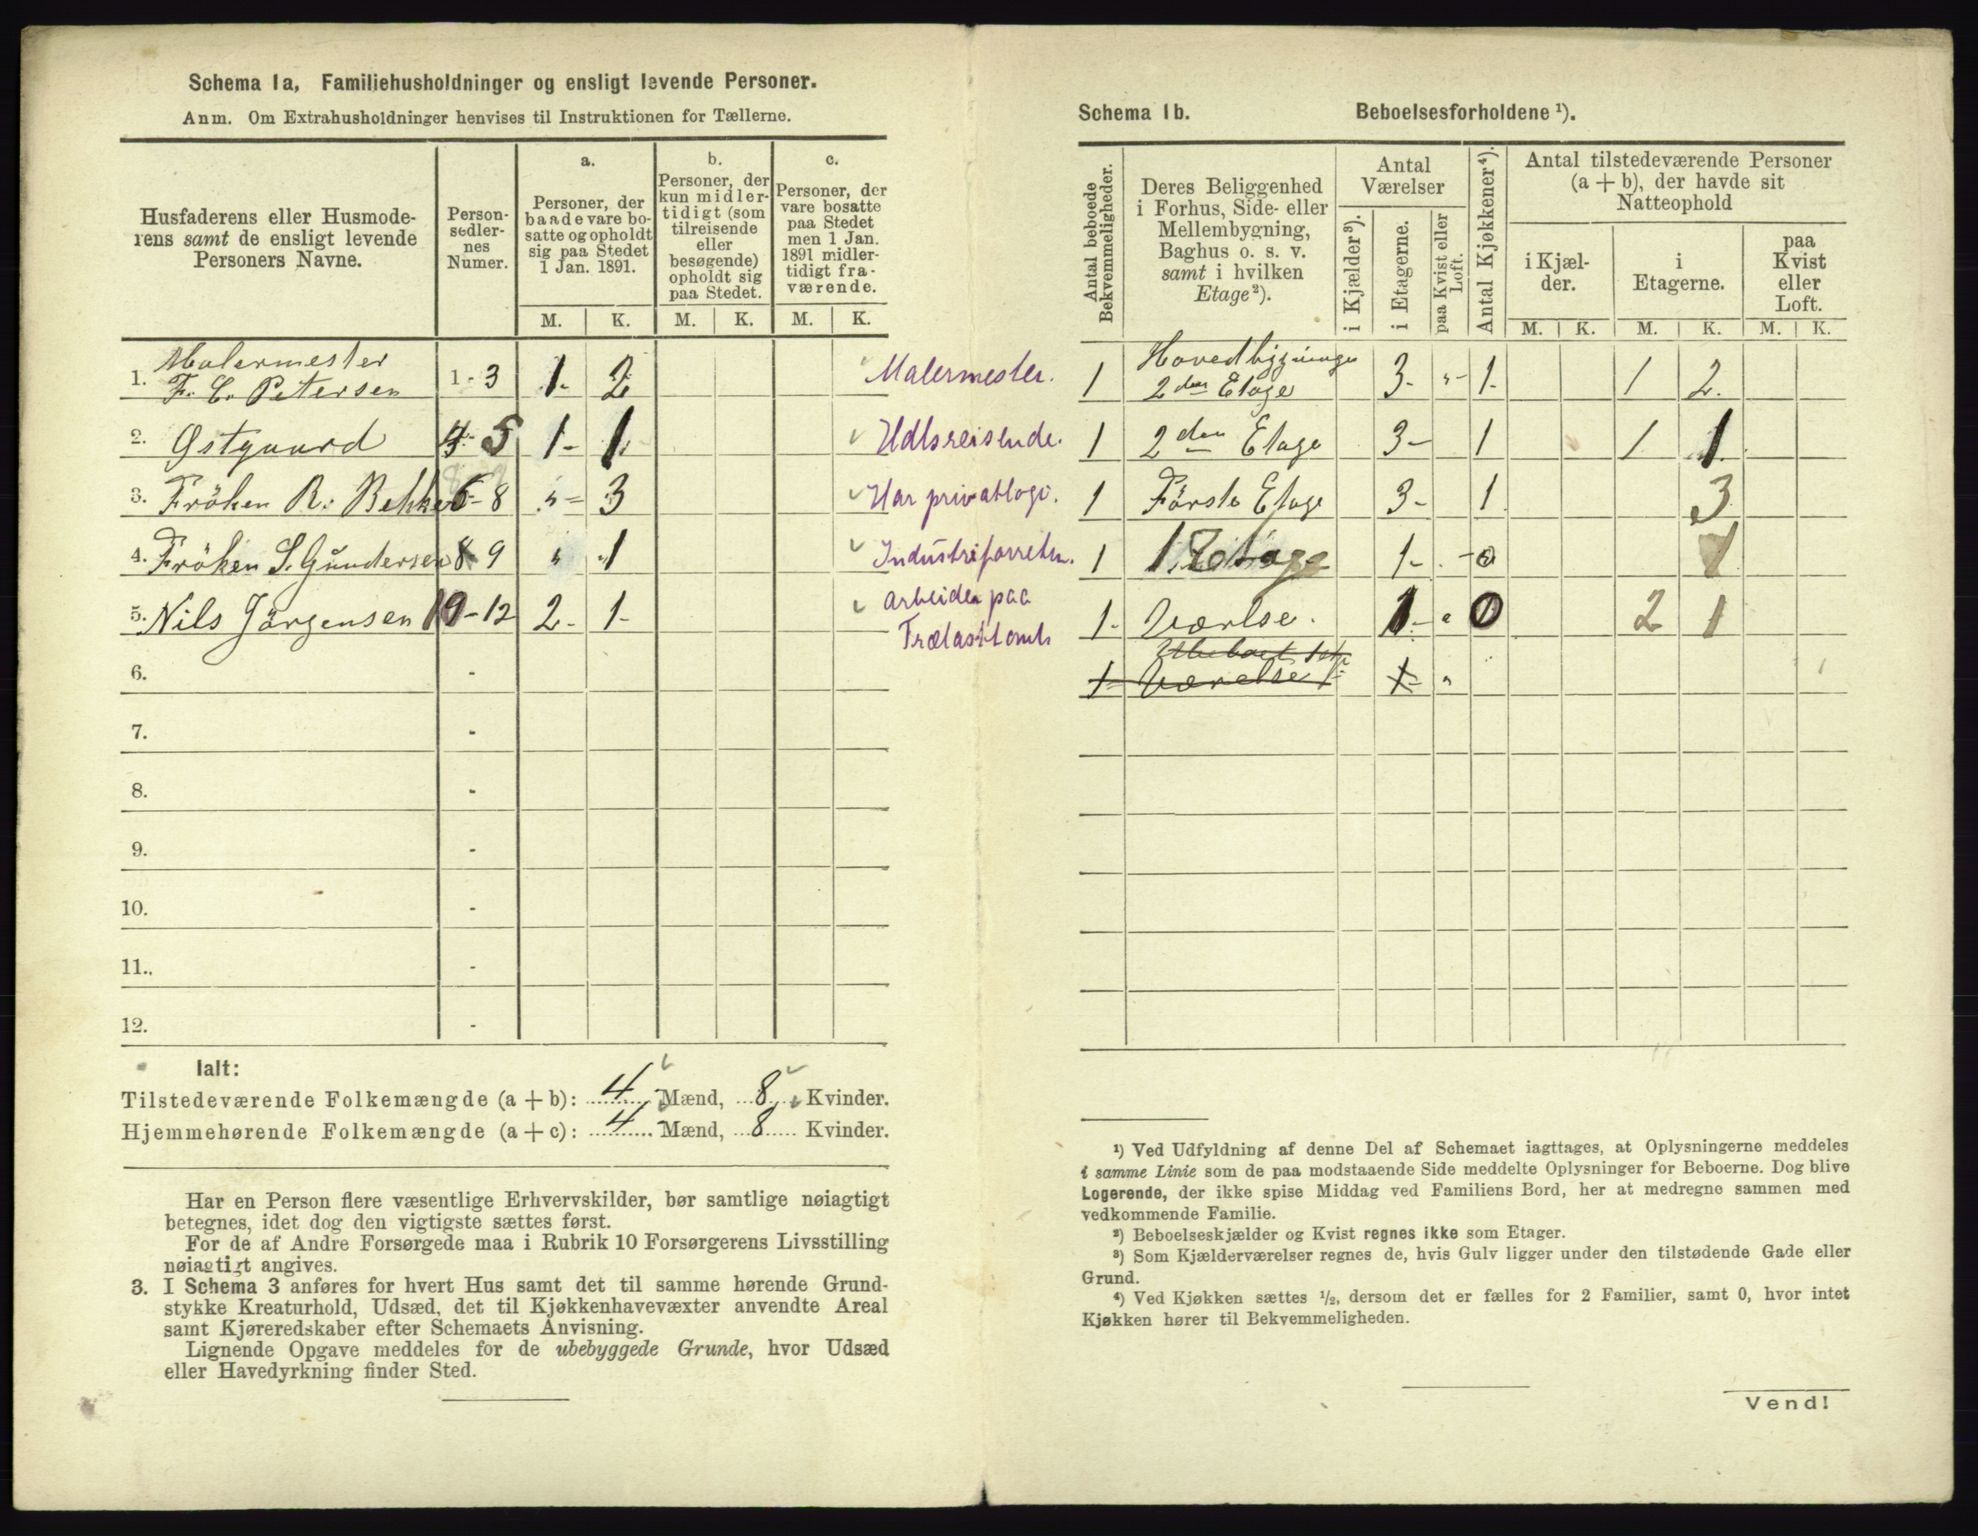 Schema 1a, Familiehusholdninger og ensligt levende Personer.
Anm. Om Extrahusholdninger henvises til Instruktionen for Tællerne.
Husfaderens eller Husmode-
rens samt de ensligt levende
Personers Navne.
Person-
sedler-
nes
Numer.
a.
Personer, der
baade vare bo-
satte og opholdt
sig paa Stedet
1 Jan. 1891.
b.
Personer, der
kun midler-
tidigt (som
tilreisende
eller
besøgende)
opholdt sig
paa Stedet.
c.
Personer, der
vare bosatte
paa Stedet
men 1 Jan.
1891 midler-
tidigt fra-
værende.
M. K. M. K. M. K.
Malermester
1. F. C. Petersen 1-3 1- 2 Malermester.
2. Østgaard 4-5 1- 1 Udlsreisende.
3. Fröken R. Bekke 6-8 „ - 3 Har privatlogi.
4. Fröken S. Gundersen 9 „ 1 Industriforretn.
5. Nils Jörgensen 10-12 2- 1- Arbeider paa
Trælasttomt
6. -
7. -
8. -
9. -
10. -
11. -
12. -
Ialt:
Tilstedeværende Folkemængde (a + b): 4 Mænd, 8 Kvinder.
Hjemmehørende Folkemængde (a + c): 4 Mænd, 8 Kvinder.
Har en Person flere væsentlige Erhvervskilder, bør samtlige nøiagtigt
betegnes, idet dog den vigtigste sættes først.
For de af Andre Forsørgede maa i Rubrik 10 Forsørgerens Livsstilling
nøiagtigt angives.
3. I Schema 3 anføres for hvert Hus samt det til samme hørende Grund-
stykke Kreaturhold, Udsæd, det til Kjøkkenhavevæxter anvendte Areal
samt Kjøreredskaber efter Schemaets Anvisning.
Lignende Opgave meddeles for de ubebyggede Grunde, hvor Udsæd
eller Havedyrkning finder Sted.
Schema 1b. Beboelsesforholdene ¹).
Antal beboede
Bekvemmeligheder.
Deres Beliggenhed
i Forhus, Side- eller
Mellembygning,
Baghus o. s. v.
samt i hvilken
Etage²).
Antal
Værelser
i Kjælder³).
i Etagerne.
paa Kvist eller
Loft.
Antal Kjøkkener⁴).
Antal tilstedeværende Personer
(a + b), der havde sit
Natteophold
i Kjæl-
der.
i
Etagerne.
paa
Kvist
eller
Loft.
M. K. M. K. M. K.
Hovedbygninge
1 2den Etage 3- „- 1- 1 2
1 2den Etage 3- 1 1 1
1 Förste Etage 3- 1 3
1 1 Etage 1- - 0 1
1- Værlse. 1- „ 0 2 1
1 Værelse 1- 1- „
¹) Ved Udfyldning af denne Del af Schemaet iagttages, at Oplysningerne meddeles
i samme Linie som de paa modstaaende Side meddelte Oplysninger for Beboerne. Dog blive
Logerende, der ikke spise Middag ved Familiens Bord, her at medregne sammen med
vedkommende Familie.
²) Beboelseskjælder og Kvist regnes ikke som Etager.
³) Som Kjælderværelser regnes de, hvis Gulv ligger under den tilstødende Gade eller
Grund.
⁴) Ved Kjøkken sættes ½, dersom det er fælles for 2 Familier, samt 0, hvor intet
Kjøkken hører til Bekvemmeligheden.
Vend!